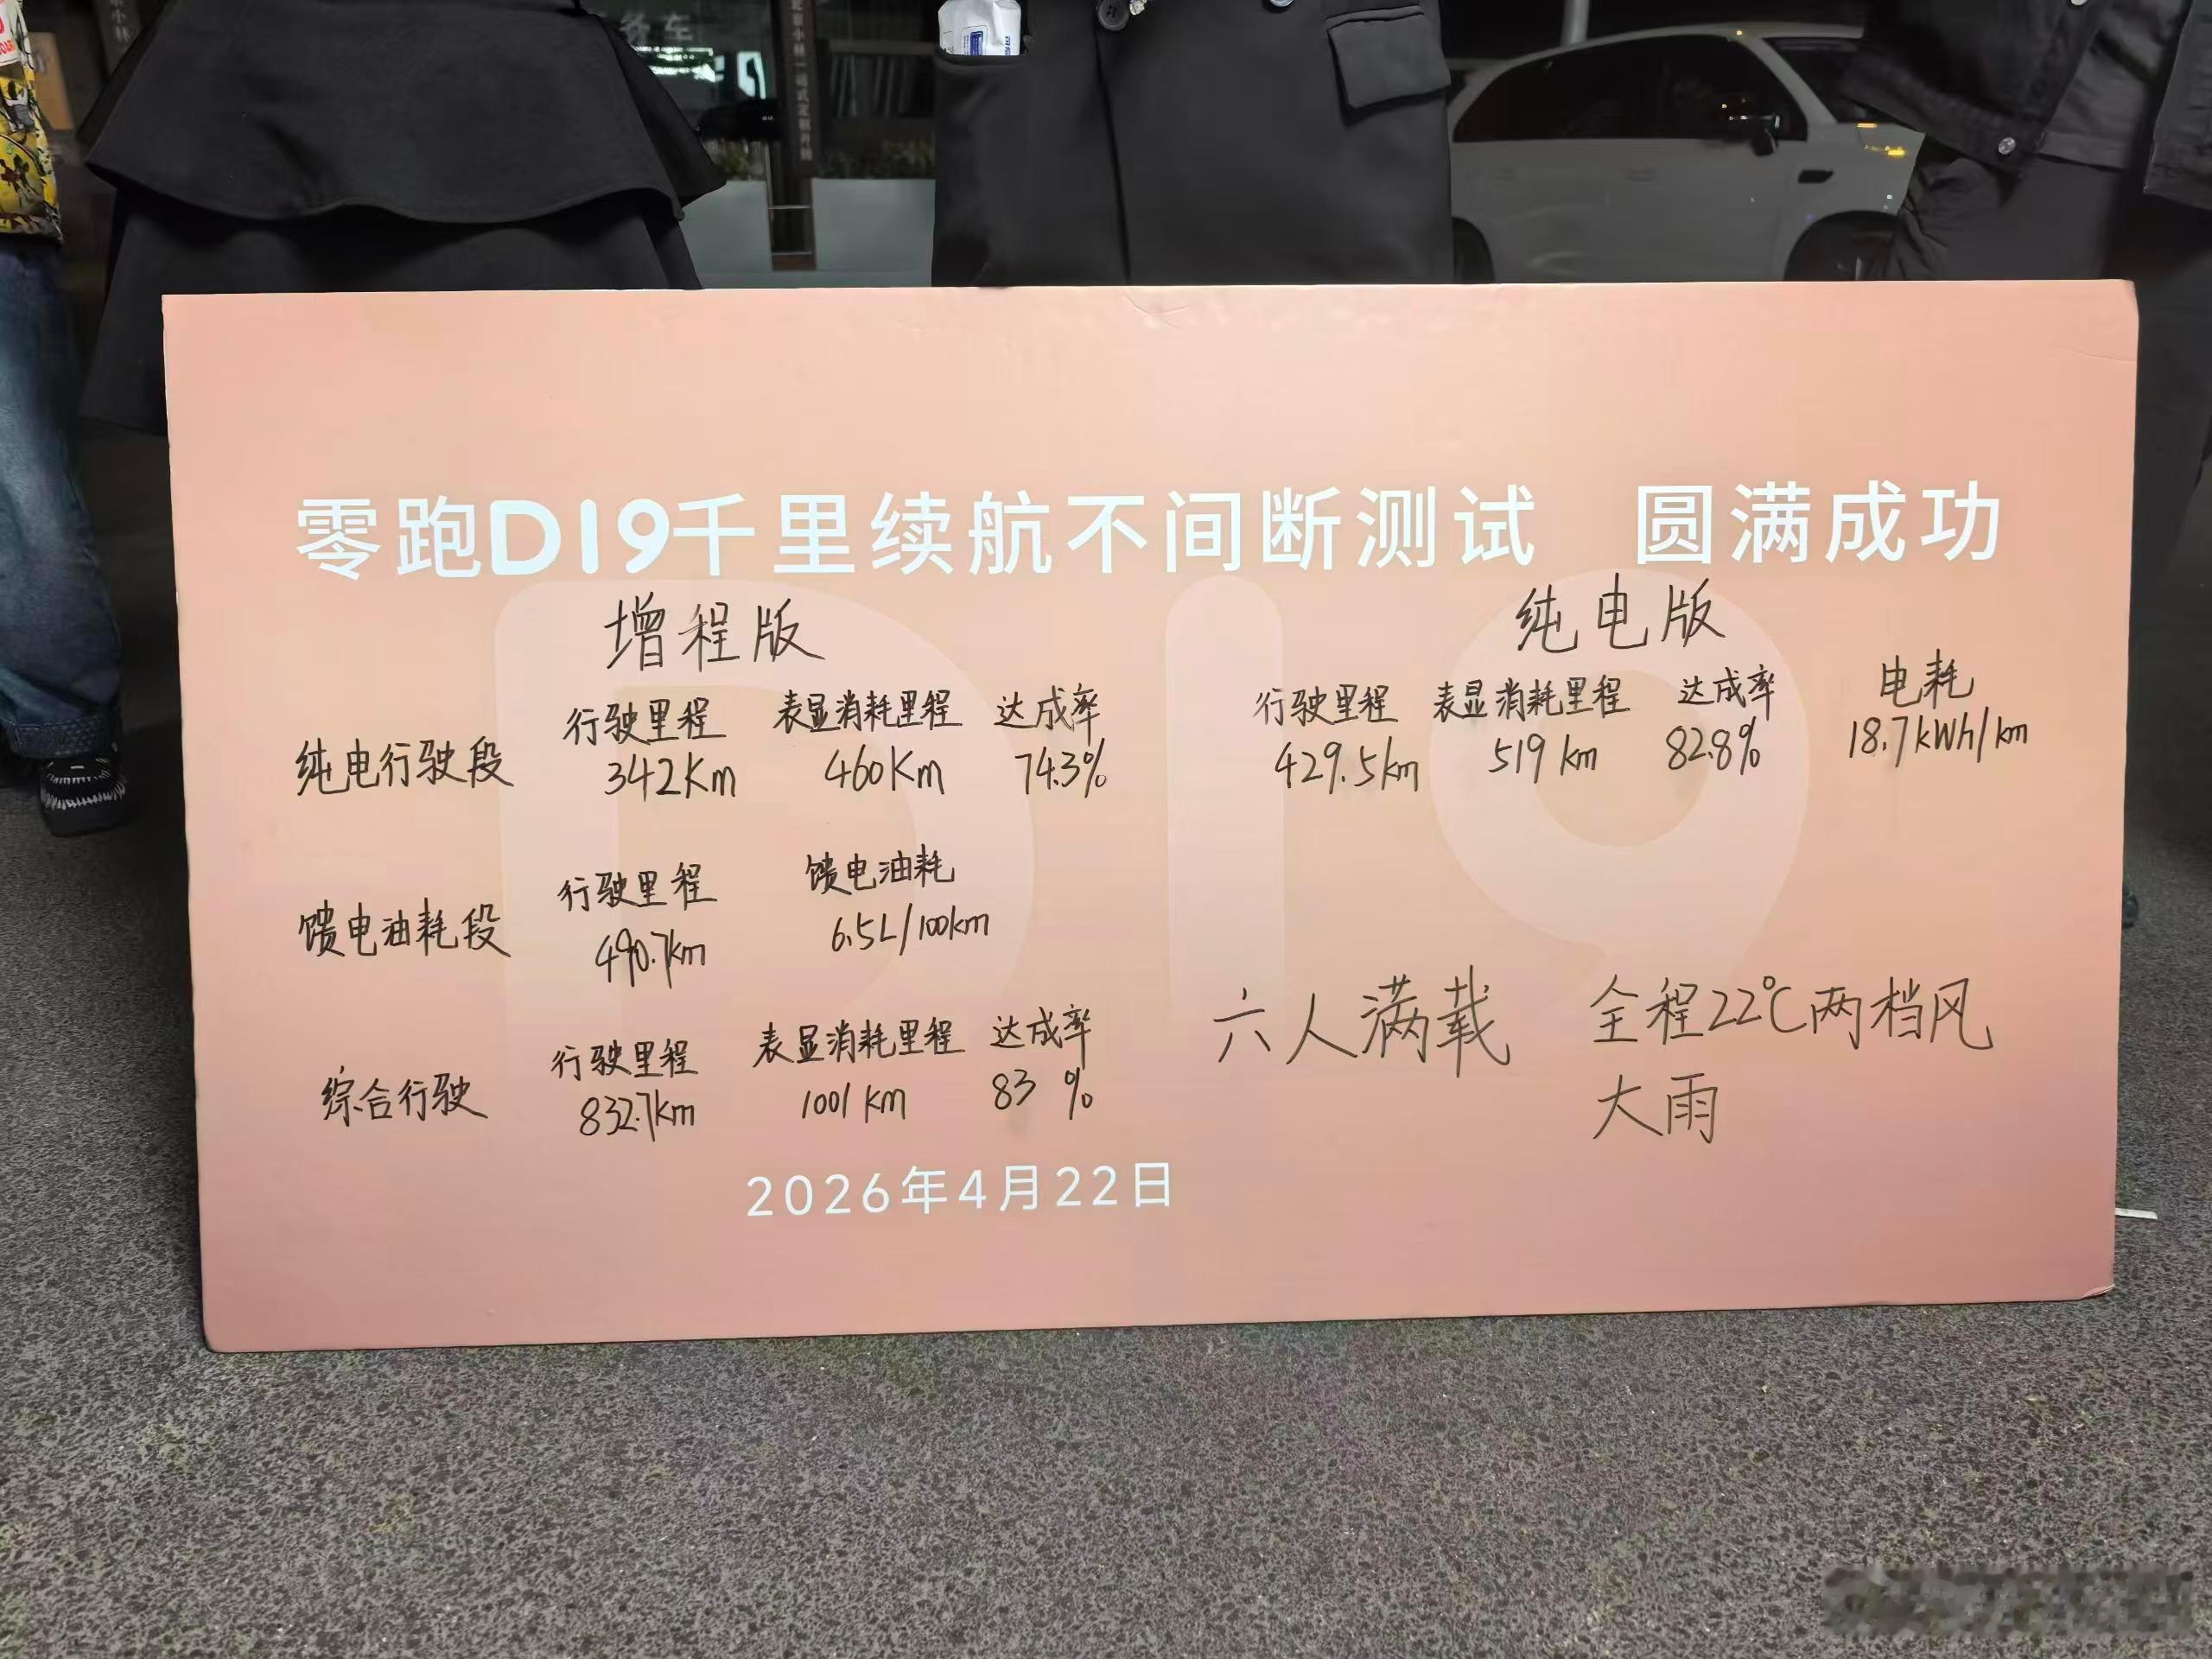 务车
零跑D19千里续航不间断测试 圆满成功
增程版
纯电版
行驶里程 表显消耗里程 达成率
纯电行驶段 342Km 460Km 74.3%
行驶里程 表显消耗里程 达成率 电耗
429.5km 519km 82.8% 18.7kWh/km
行驶里程 馈电油耗
馈电油耗段 490.7km 6.5L/100km
行驶里程 表显消耗里程 达成率
综合行驶 832.7km 1001km 83%
六人满载 全程22℃两档风
大雨
2026年4月22日
D19